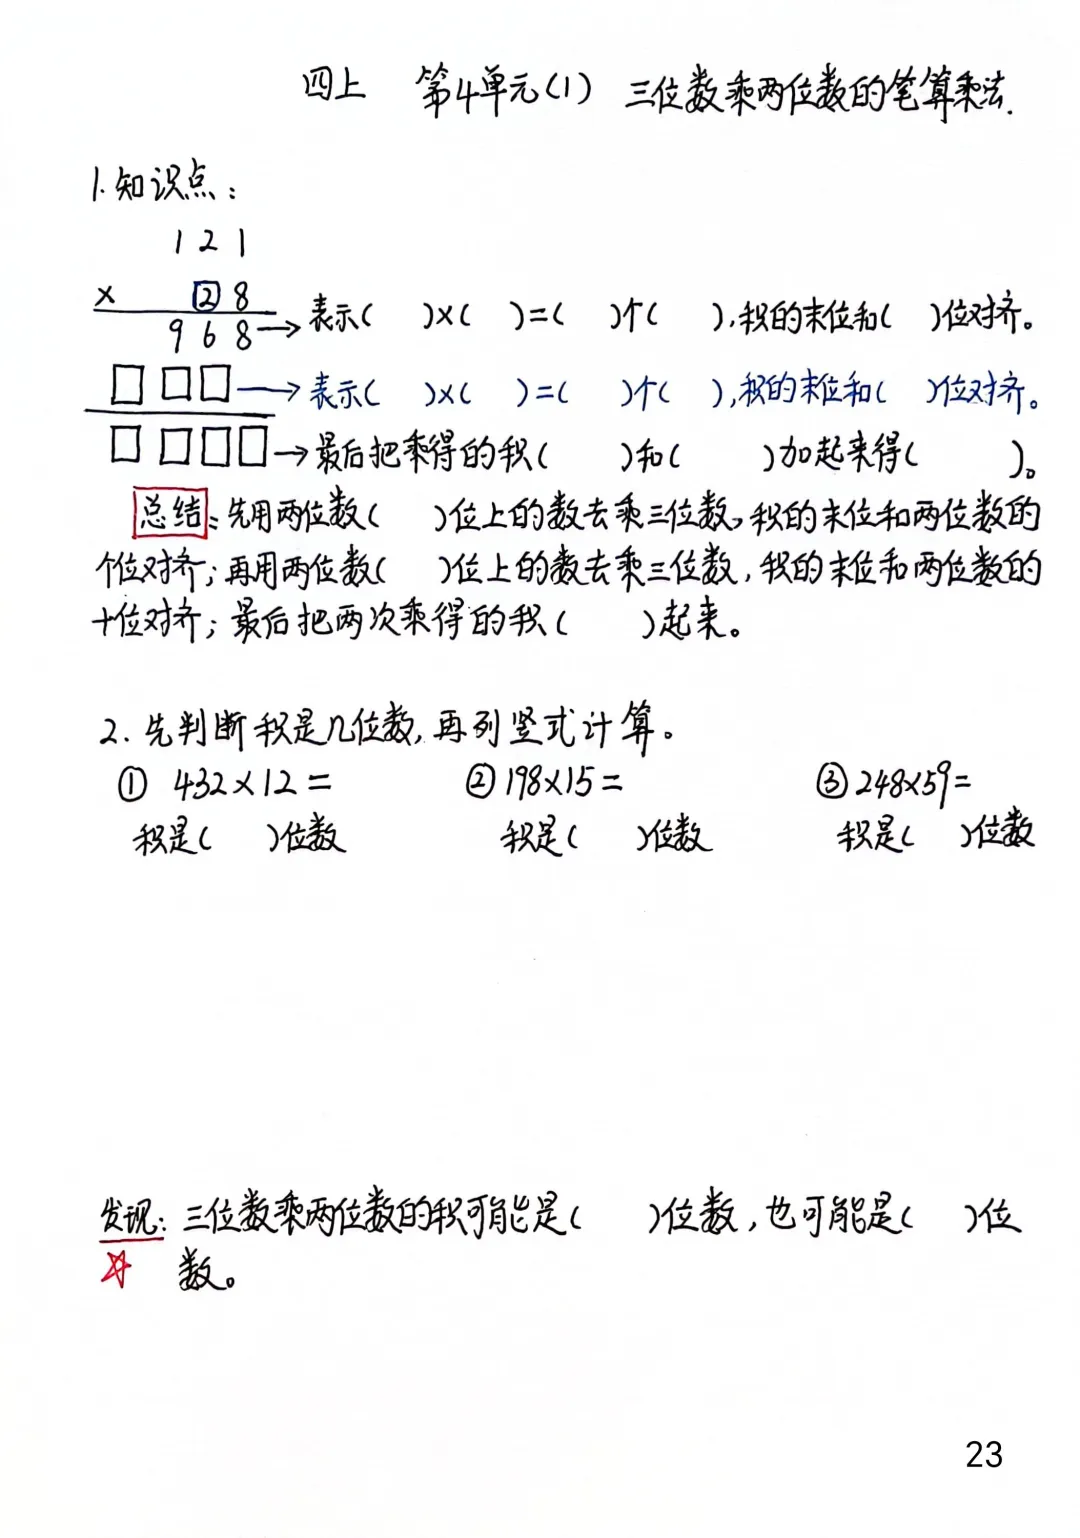 四上 第4单元(1) 三位数乘两位数的笔算乘法.
1.知识点：
121
× 28
968→表示( )×( )=( )个( ),积的末位和( )位对齐。
□□□→表示( )×( )=( )个( ),积的末位和( )位对齐。
□□□□→最后把乘得的积( )和( )加起来得( )。
总结:先用两位数( )位上的数去乘三位数,积的末位和两位数的
个位对齐;再用两位数( )位上的数去乘三位数,积的末位和两位数的
十位对齐;最后把两次乘得的积( )起来。
2.先判断积是几位数,再列竖式计算。
① 432×12= ② 198×15= ③ 248×59=
积是( )位数 积是( )位数 积是( )位数
发现:三位数乘两位数的积可能是( )位数,也可能是( )位
☆ 数。
23